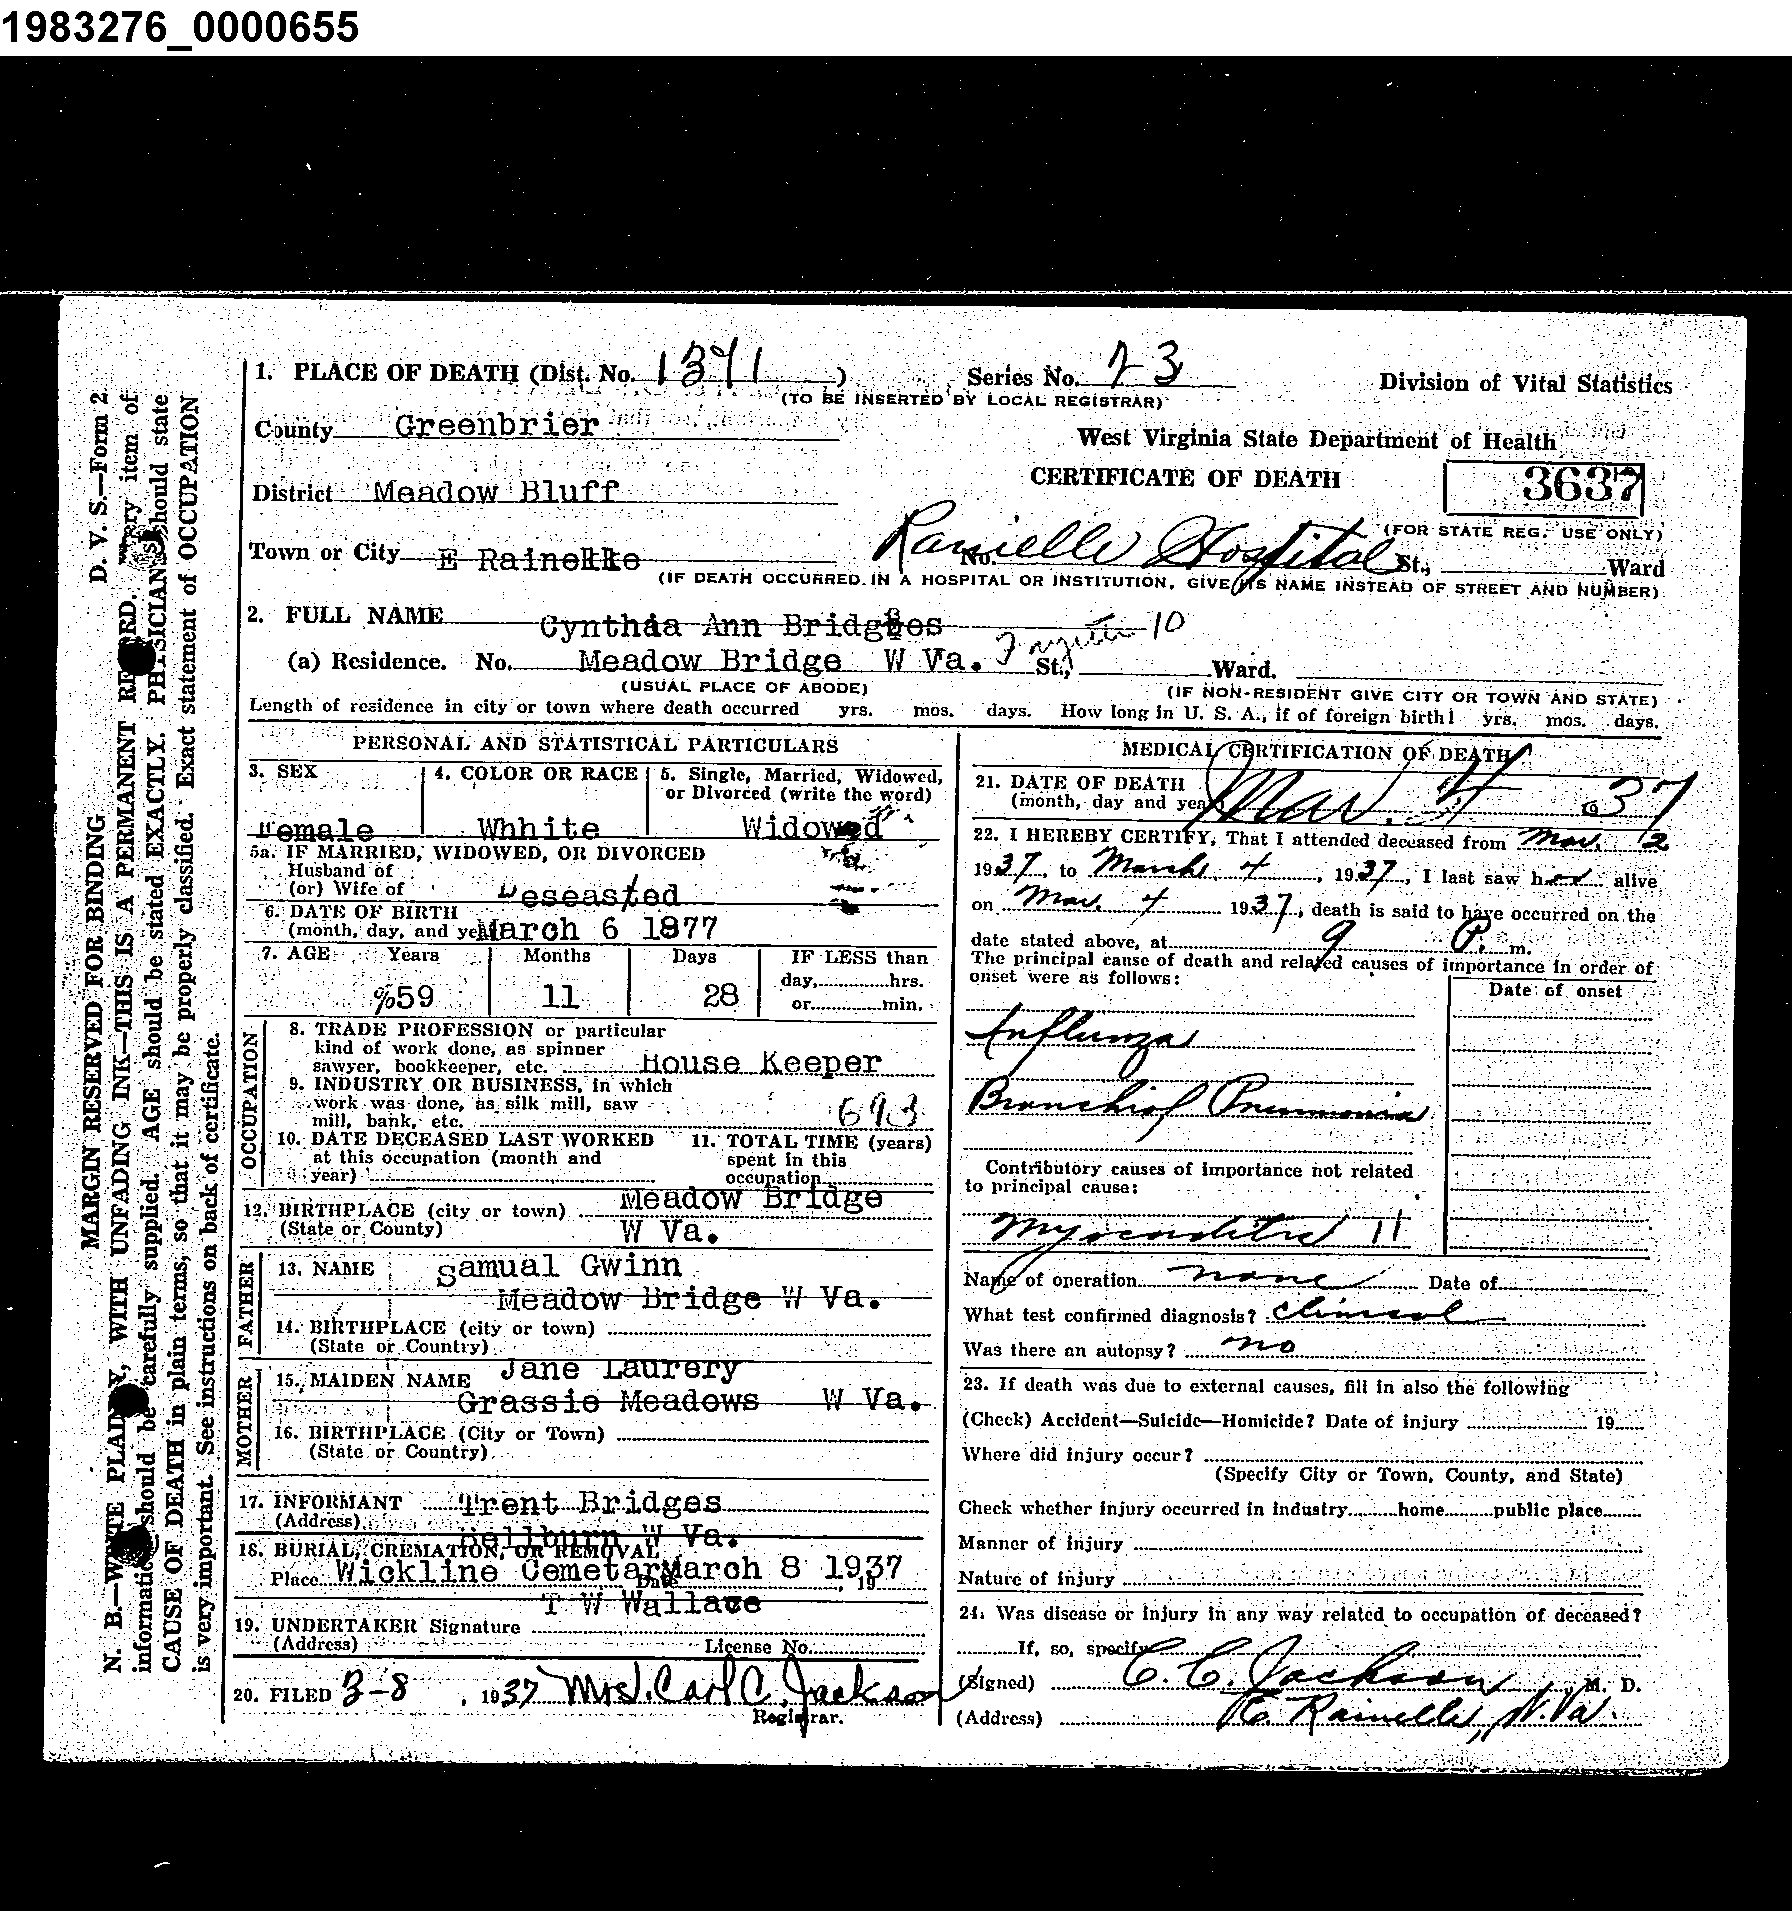 1983276_0000655
1. PLACE OF DEATH (Dist. No. 1371) Series No. 23 Division of Vital Statistics
(TO BE INSERTED BY LOCAL REGISTRAR)
County Greenbrier
West Virginia State Department of Health
CERTIFICATE OF DEATH 3637
District Meadow Bluff
(FOR STATE REG. USE ONLY)
Town or City E Rainelle No. Rainelle Hospital St., Ward
(IF DEATH OCCURRED IN A HOSPITAL OR INSTITUTION, GIVE ITS NAME INSTEAD OF STREET AND NUMBER)
2. FULL NAME Cynthia Ann Bridges
(a) Residence. No. Meadow Bridge W Va. Fayette 10 St., Ward.
(USUAL PLACE OF ABODE) (IF NON-RESIDENT GIVE CITY OR TOWN AND STATE)
Length of residence in city or town where death occurred yrs. mos. days. How long in U. S. A., if of foreign birth? yrs. mos. days.
PERSONAL AND STATISTICAL PARTICULARS
3. SEX 4. COLOR OR RACE 5. Single, Married, Widowed,
or Divorced (write the word)
Female Whhite Widowed
5a. IF MARRIED, WIDOWED, OR DIVORCED
Husband of
(or) Wife of Deseasted
6. DATE OF BIRTH
(month, day, and year) March 6 1877
7. AGE Years Months Days IF LESS than
day, hrs.
%59 11 28 or min.
OCCUPATION
8. TRADE PROFESSION or particular
kind of work done, as spinner
sawyer, bookkeeper, etc. House Keeper
9. INDUSTRY OR BUSINESS, in which
work was done, as silk mill, saw
mill, bank, etc. 693
10. DATE DECEASED LAST WORKED 11. TOTAL TIME (years)
at this occupation (month and spent in this
year) occupation
12. BIRTHPLACE (city or town) Meadow Bridge
(State or County) W Va.
FATHER
13. NAME Samual Gwinn
Meadow Bridge W Va.
14. BIRTHPLACE (city or town)
(State or Country)
MOTHER
Jane Laurery
15. MAIDEN NAME
Grassie Meadows W Va.
16. BIRTHPLACE (City or Town)
(State or Country)
17. INFORMANT Trent Bridges
(Address)
Bellburn W Va.
18. BURIAL, CREMATION, OR REMOVAL
Place Wickline Cemetary Date March 8 1937 , 19
T W Wallace
19. UNDERTAKER Signature
(Address) License No.
20. FILED 3-8, 1937 Mrs. Carl C. Jackson
Registrar.
MEDICAL CERTIFICATION OF DEATH
21. DATE OF DEATH
(month, day and year) Mar. 4 1937
22. I HEREBY CERTIFY, That I attended deceased from Mar. 2
1937, to March 4, 1937, I last saw her alive
on Mar. 4 1937, death is said to have occurred on the
date stated above, at 9 P. m.
The principal cause of death and related causes of importance in order of
onset were as follows:
Date of onset
Influnza
Bronchial Pneumonia
Contributory causes of importance not related
to principal cause:
Myocarditis 11
Name of operation none Date of
What test confirmed diagnosis? clinical
Was there an autopsy? no
23. If death was due to external causes, fill in also the following
(Check) Accident—Suicide—Homicide? Date of injury 19
Where did injury occur?
(Specify City or Town, County, and State)
Check whether injury occurred in industry home public place
Manner of injury
Nature of injury
24. Was disease or injury in any way related to occupation of deceased?
If, so, specify
(Signed) C. C. Jackson, M. D.
(Address) E. Rainelle, W. Va.
D. V. S.—Form 2
MARGIN RESERVED FOR BINDING
N. B.—WRITE PLAINLY, WITH UNFADING INK—THIS IS A PERMANENT RECORD. Every item of
information should be carefully supplied. AGE should be stated EXACTLY. PHYSICIANS should state
CAUSE OF DEATH in plain terms, so that it may be properly classified. Exact statement of OCCUPATION
is very important. See instructions on back of certificate.